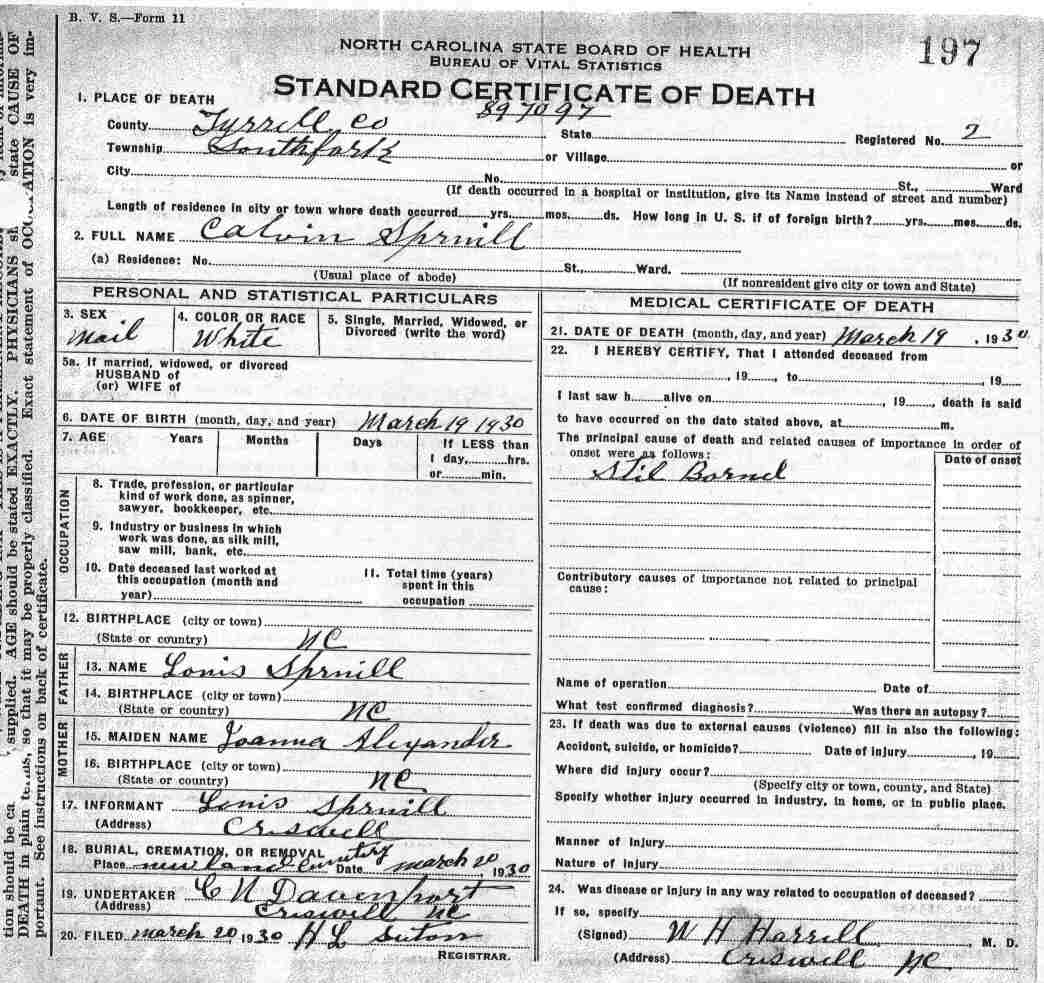 B. V. S.—Form 11
197
NORTH CAROLINA STATE BOARD OF HEALTH
BUREAU OF VITAL STATISTICS
STANDARD CERTIFICATE OF DEATH
897097
1. PLACE OF DEATH
County Tyrrell co State Registered No. 2
Township Southfork or Village or
City No. St., Ward
(If death occurred in a hospital or institution, give its Name instead of street and number)
Length of residence in city or town where death occurred yrs. mos. ds. How long in U. S. if of foreign birth? yrs. mos. ds.
2. FULL NAME Calvin Spruill
(a) Residence: No. St., Ward.
(Usual place of abode) (If nonresident give city or town and State)
PERSONAL AND STATISTICAL PARTICULARS
3. SEX 4. COLOR OR RACE 5. Single, Married, Widowed, or
Divorced (write the word)
Mail White
5a. If married, widowed, or divorced
HUSBAND of
(or) WIFE of
6. DATE OF BIRTH (month, day, and year) March 19 1930
7. AGE Years Months Days If LESS than
1 day, hrs.
or min.
OCCUPATION
8. Trade, profession, or particular
kind of work done, as spinner,
sawyer, bookkeeper, etc.
9. Industry or business in which
work was done, as silk mill,
saw mill, bank, etc.
10. Date deceased last worked at
this occupation (month and
year)
11. Total time (years)
spent in this
occupation
12. BIRTHPLACE (city or town)
(State or country) NC
FATHER
13. NAME Louis Spruill
14. BIRTHPLACE (city or town)
(State or country) NC
MOTHER
15. MAIDEN NAME Joanna Alexander
16. BIRTHPLACE (city or town)
(State or country) NC
17. INFORMANT Louis Spruill
(Address) Criswell
18. BURIAL, CREMATION, OR REMOVAL
Place newland Cemetery Date march 20, 1930
19. UNDERTAKER C N Davenport
(Address) Criswell NC
20. FILED march 20, 1930 H L Suton
REGISTRAR.
MEDICAL CERTIFICATE OF DEATH
21. DATE OF DEATH (month, day, and year) March 19, 1930
22. I HEREBY CERTIFY, That I attended deceased from
, 19 , to , 19
I last saw h alive on , 19 , death is said
to have occurred on the date stated above, at m.
The principal cause of death and related causes of importance in order of
onset were as follows:
Date of onset
Stil Bornd
Contributory causes of importance not related to principal
cause:
Name of operation Date of
What test confirmed diagnosis? Was there an autopsy?
23. If death was due to external causes (violence) fill in also the following:
Accident, suicide, or homicide? Date of injury , 19
Where did injury occur?
(Specify city or town, county, and State)
Specify whether injury occurred in industry, in home, or in public place.
Manner of injury
Nature of injury
24. Was disease or injury in any way related to occupation of deceased?
If so, specify
(Signed) W H Harrill, M. D.
(Address) Criswell NC
tion should be supplied. AGE should be stated EXACTLY. PHYSICIANS state CAUSE OF
DEATH in plain so that it may be properly classified. Exact statement of OCCUPATION is very im-
portant. See instructions on back of certificate.